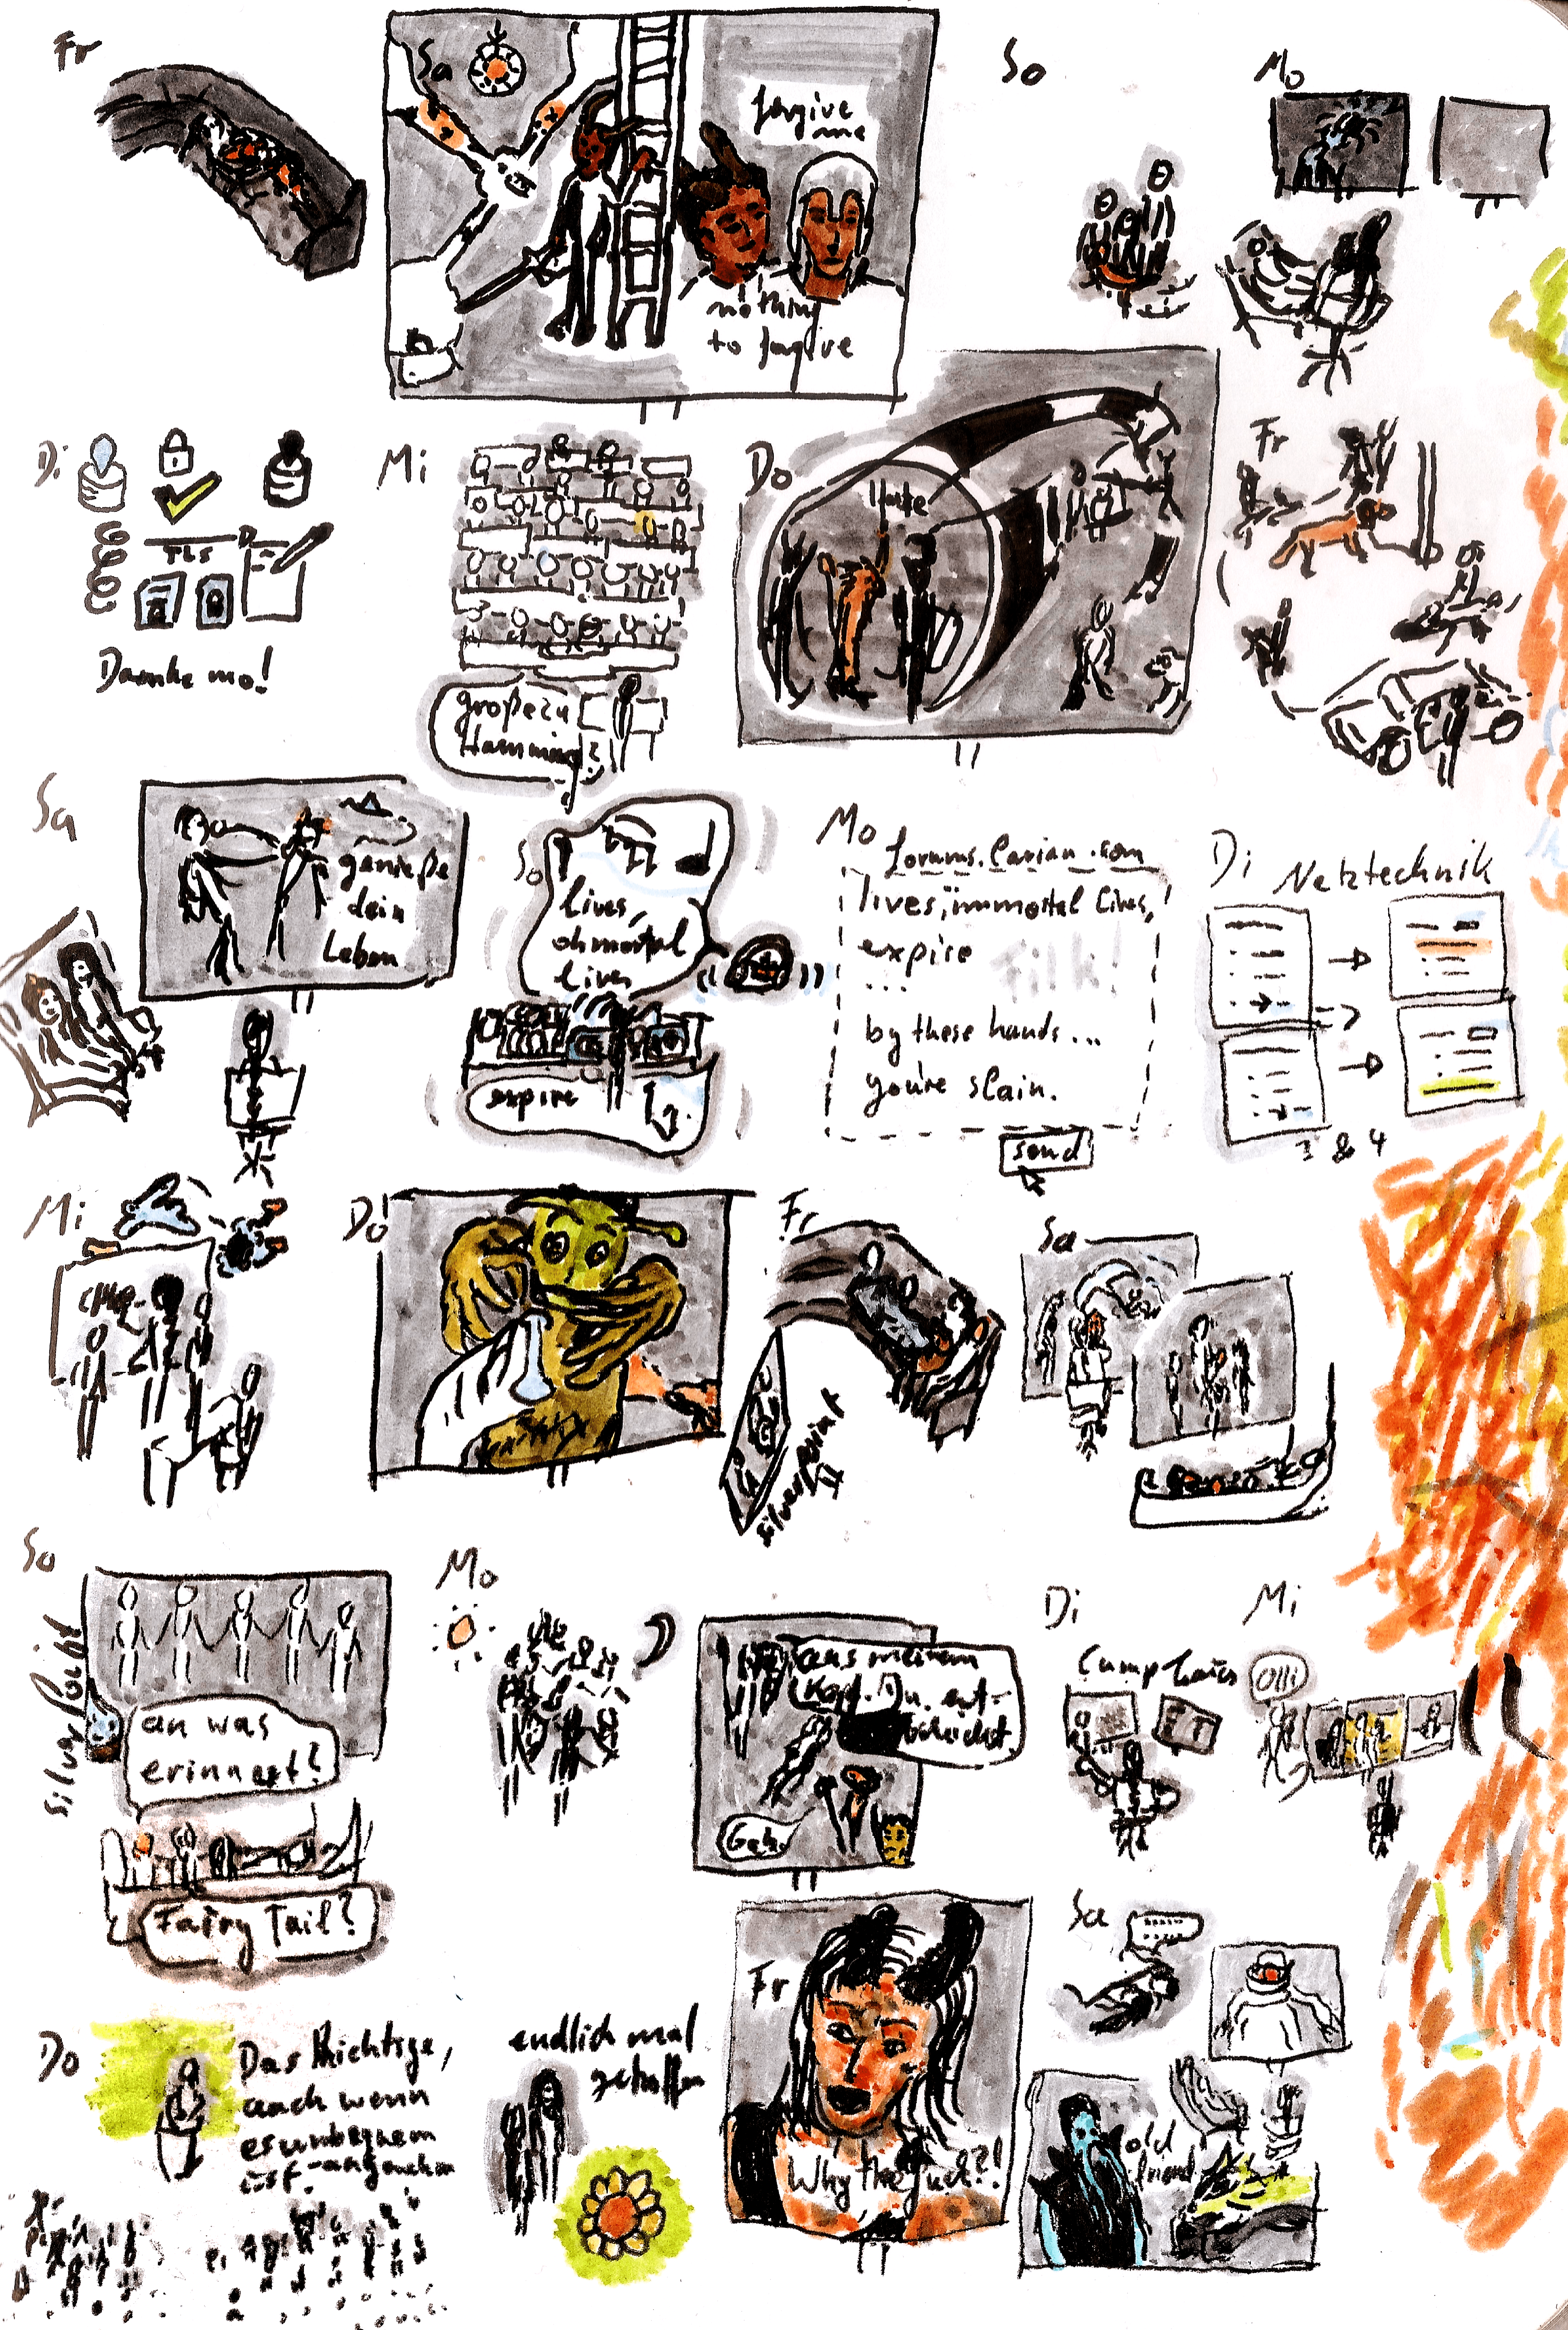 Fr
Sa
forgive
me
nothing
to forgive
So
Mo
Di
TLS
Daenke mo!
Mi
große zu
Hamming?
Do
Fr
Sa
genieße
dein
Leben
So
lives,
oh mortal
lives
expire
Mo
forums.larian.com
lives, immortal lives,
expire
Filk!
...
by these hands...
you're slain.
send
Di
Netztechnik
3 & 4
Mi
Do
Fr
silverpoint
II
Sa
So
silverpoint
an was
erinnert?
Fairy Tail?
Mo
aus meinem
Kopf. Du
Geh.
Di
Mi
Olli
Do
Das Richtige,
auch wenn
es unbequem
ist.
endlich mal
getroffen
Fr
Why the fuck?!
Sa
old
friend